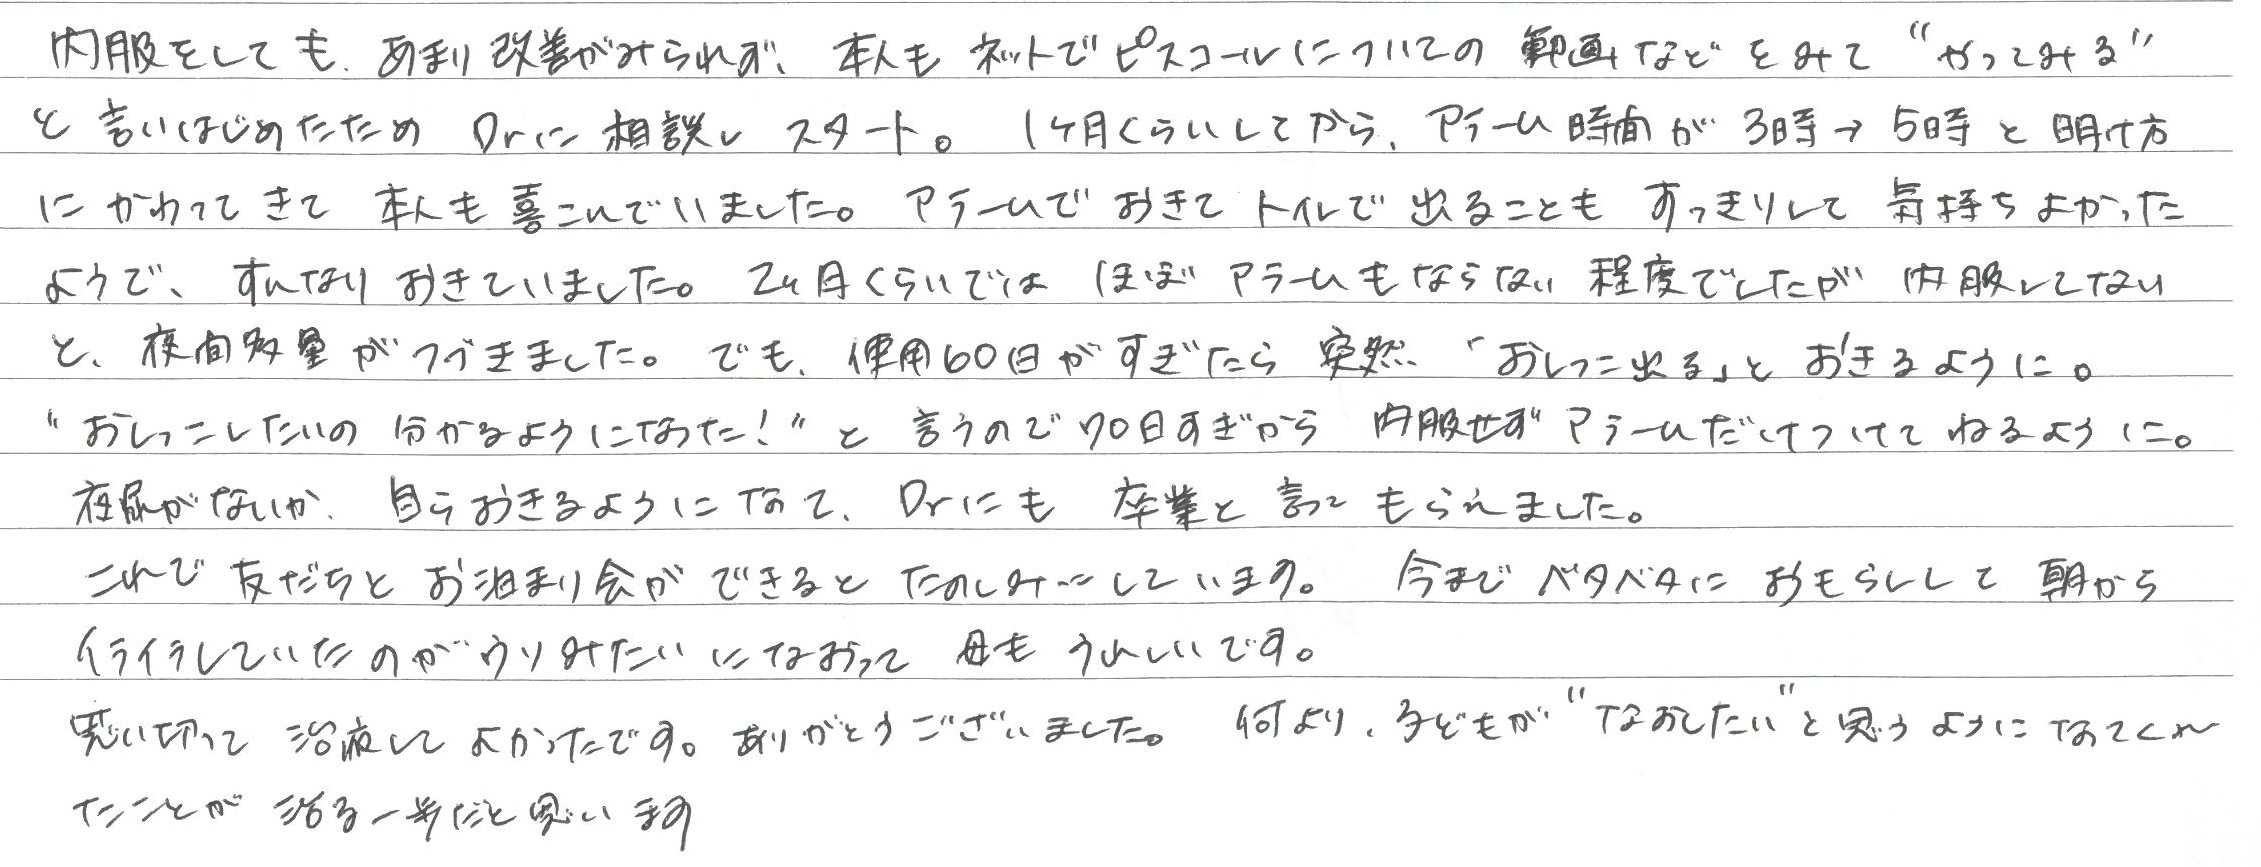 内服をしても、あまり改善がみられず、本人もネットでピスコールについての動画などをみて“やってみる”
と言いはじめたため Drに相談し スタート。1ヶ月くらいしてから、アラーム時間が3時→5時と明け方
にかわってきて 本人も喜こんでいました。アラームでおきてトイレで出ることもすっきりして気持ちよかった
ようで、すんなりおきていました。2ヶ月くらいでは ほぼアラームもならない程度でしたが 内服してない
と、夜間多量がつづきました。でも、使用60日がすぎたら突然「おしっこ出る」とおきるように。
“おしっこしたいの分かるようになった！”と言うので70日すぎから 内服せずアラームだけつけてねるように。
夜尿がないか、自らおきるようになって、Drにも卒業と言ってもらえました。
これで友だちとお泊まり会ができるとたのしみにしています。今までベタベタにおもらしして朝から
イライラしていたのがウソみたいになおって母もうれしいです。
思い切って治療してよかったです。ありがとうございました。何より、子どもが“なおしたい”と思うようになってくれ
たことが治る一歩だと思います